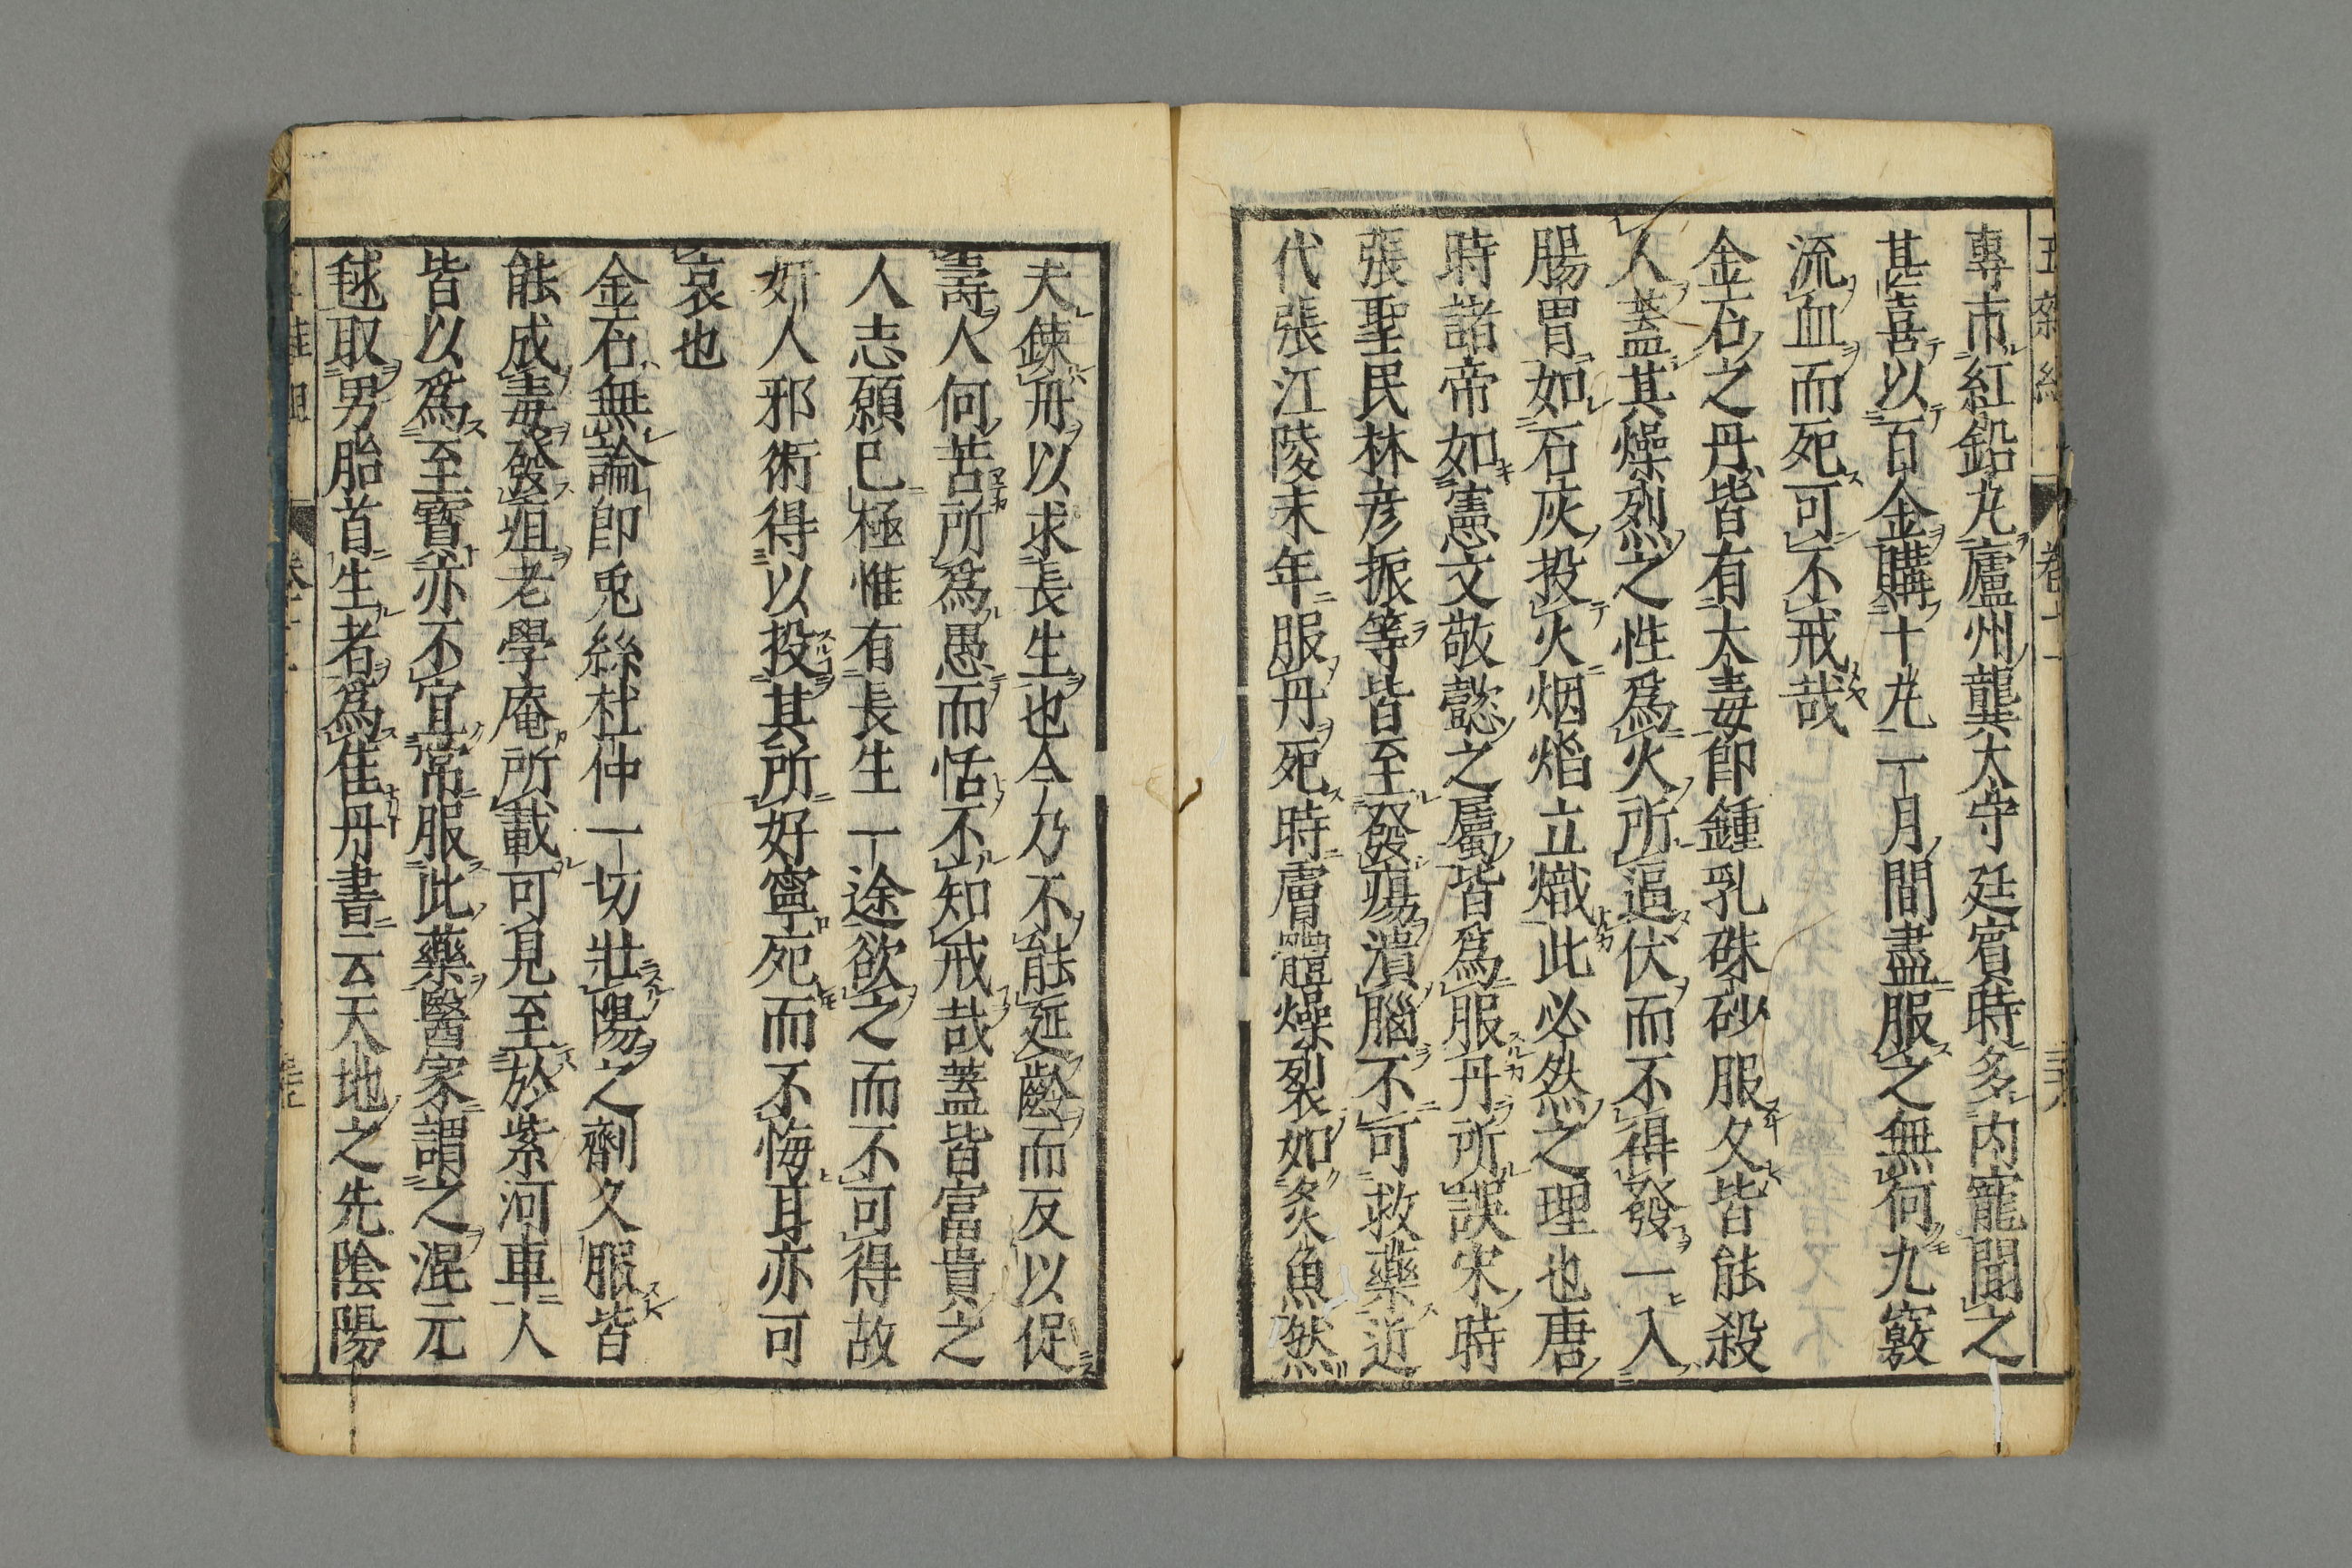 專市紅鉛九廬州龔太守廷賓時多内寵聞之
甚喜以百金購十九一月間盡服之無何九竅
流血而死可不戒哉
金石之丹皆有大毒即鍾乳硃砂服久皆能殺
人蓋其燥烈之性爲火所逼伏而不得發一入
腸胃如石灰投火烟熖立熾此必然之理也唐
時諸帝如憲文敬懿之屬皆爲服丹所誤宋時
張聖民林彦振等皆至發瘍潰腦不可救藥近
代張江陵末年服丹死時膚體燥裂如炙魚然
夫錬丹以求長生也今乃不能延齡而反以促
壽人何苦所爲愚而恬不知戒哉蓋皆富貴之
人志願已極惟有長生一途欲之而不可得故
奸人邪術得以投其所好寧死而不悔耳亦可
哀也
金石無論即兎絲杜仲一切壯陽之劑久服皆
能成毒發疽老學庵所載可見至於紫河車人
皆以爲至寶亦不宜常服此藥醫家謂之混元
毬取男胎首生者爲隹丹書云天地之先陰陽